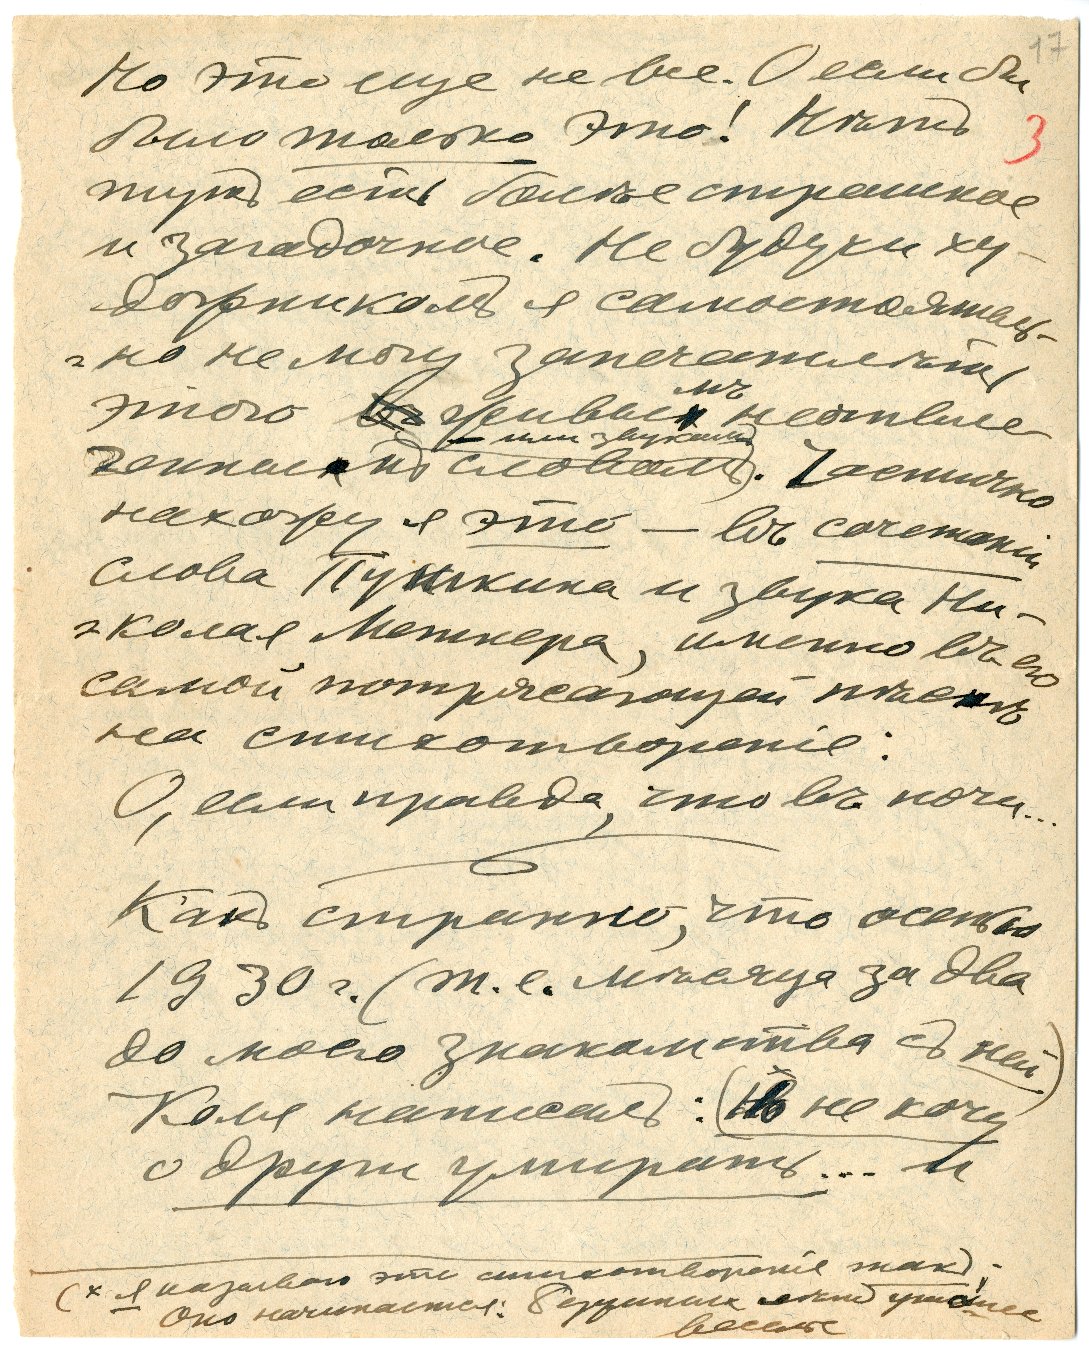 17
Но это еще не все. О если бы
было только это! Нѣтъ 3
тутъ есть болѣе страшное
и загадочное. Не будучи ху-
дожникомъ я самостоятель-
но не могу запечатлѣть
этого живымъ неотвле-
ченнымъ словомъ). Частично
или звукомъ
нахожу я это — въ сочетанiи
слова Пушкина и звука Ни-
колая Метнера, именно въ его
самой потрясающей пѣснѣ
на стихотворенiе:
О, если правда, что въ ночи...
Какъ странно, что осенью
1930 г. (т. е. мѣсяца за два
до моего знакомства съ ней)
Коля написалъ: (Но не хочу
о други умирать... и
(х я называю это стихотворенiе такъ).
Оно начинается: Безумныхъ лѣтъ угасшее
веселье